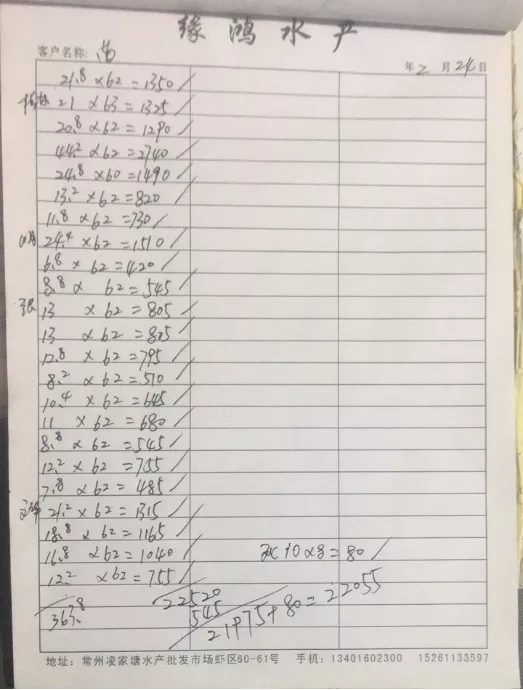 缘鸿水产
客户名称: 年2月24日
21.8×62=1350/
21×63=1325/
20.8×62=1290/
44.2×62=2740/
24.8×60=1490/
13.2×62=820/
11.8×62=730/
24.4×62=1510/
6.8×62=420/
8.8×62=545/
张 13×62=805/
13×62=805/
12.8×62=795/
8.2×62=510/
10.4×62=645/
11×62=680/
8.8×62=545/
12.2×62=755/
7.8×62=485/
21.2×62=1315/
18.8×62=1165/
16.8×62=1040/ 10×8=80/
12.2×62=755/
363.8 22520
545
21975+80=22055
地址：常州凌家塘水产批发市场虾区60-61号 手机：13401602300 15261133597